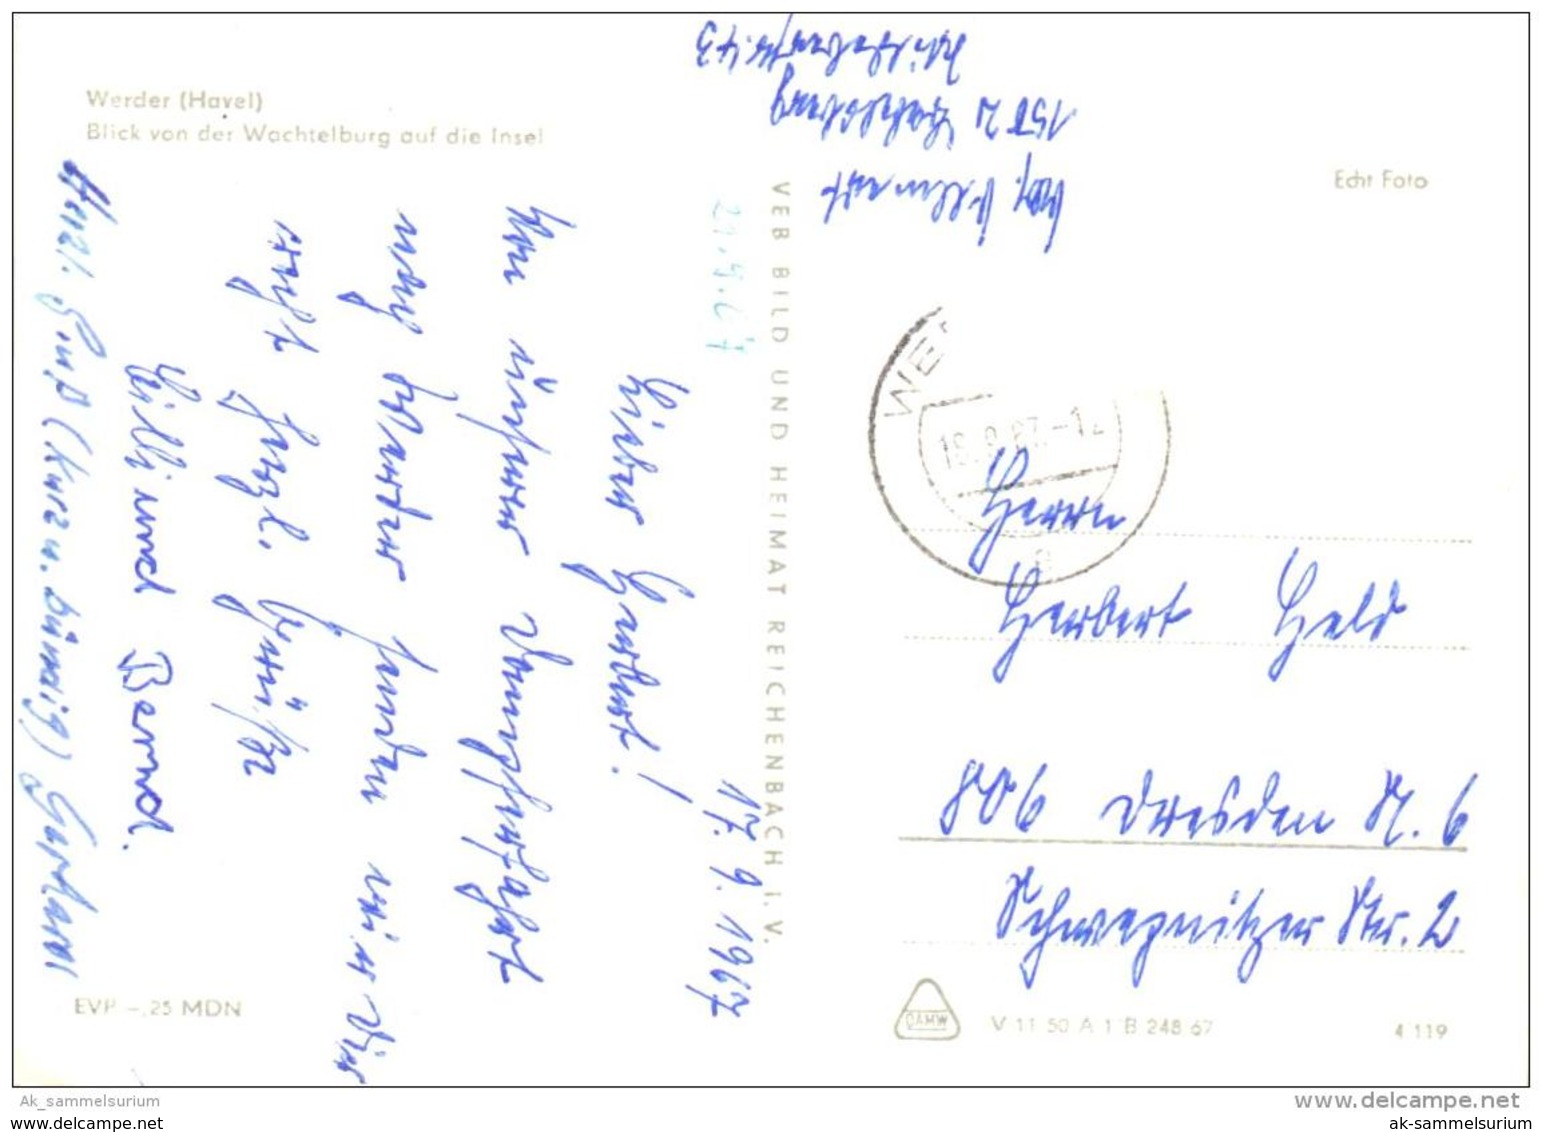 Werder (Havel)
Blick von der Wachtelburg auf die Insel
17. 9. 1967
Lieber Herbert!
Von unserer Dampferfahrt
nach Werder senden wir Dir
recht herzl. Grüße
Lilli und Bernd.
Herzl. Gruß (kurz u. bündig) Gerhard
21.9.67
EVP -,25 MDN
VEB BILD UND HEIMAT REICHENBACH I. V.
Abs.
1502
43
Echt Foto
WE
18.9.67.-12
a
Herrn
Herbert Held
806 Dresden N. 6
Schwepnitzer Str. 2
DAMW
V 11 50 A 1 B 248 67
4 119
Ak_sammelsurium
www.delcampe.net
www.delcampe.net
ak-sammelsurium